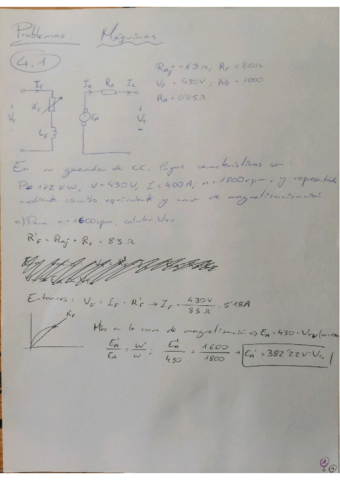 Problemas: Máquinas
4.1
Raj = 63 Ω, RF = 20 Ω
VF = 430V, Nf = 1000
RA = 0'05 Ω
IF IA RA IL
VF RF EA VT
LF
En un generador de CC,
P = 172 kW, V = 430V, I = 400A, n = 1800 rpm, y representado
mediante circuito equivalente y curva de magnetización
Para n = 1600 rpm, calcular
R'F = Raj + RF = 83 Ω
Entonces: VF = IF · R'F → IF = 430V / 83 Ω = 5'18A
R'F
en la curva de magnetización ⇒ EA = 430 =
E'A / EA = w' / w ; E'A / 430 = 1600 / 1800 → E'A = 382'22V